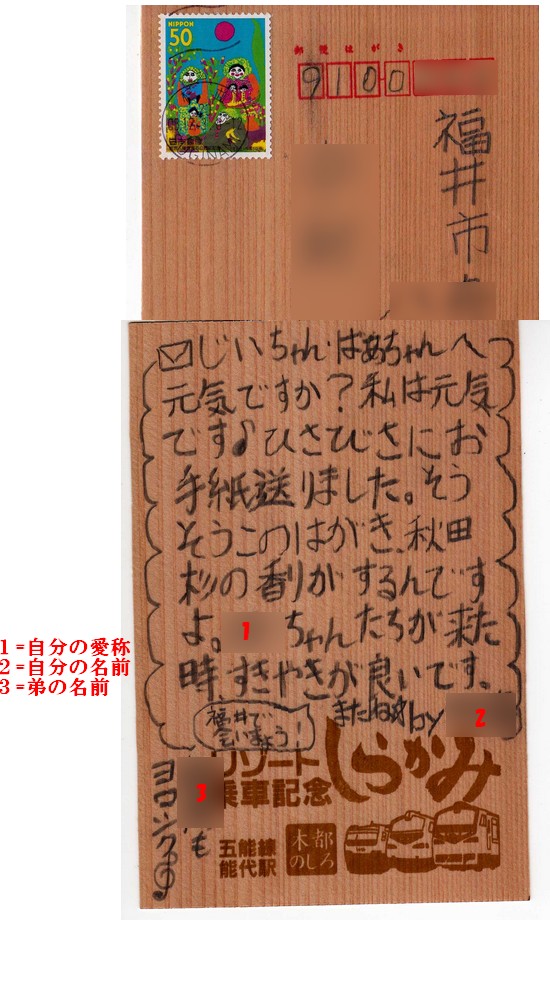 NIPPON
50
郵便はがき
9100
福井市
✉じいちゃん・ばあちゃんへ
元気ですか?私は元気
です♪ひさびさにお
手紙送りました。そう
そうこのはがき、秋田
杉の香りがするんです
よ。1ちゃんたちが来た
時、すきやきが良いです。
またね☆by 2
福井で
会いましょう!
3も
ヨロシク
リゾート
しらかみ
乗車記念
五能線
能代駅
木都
のしろ
1=自分の愛称
2=自分の名前
3=弟の名前